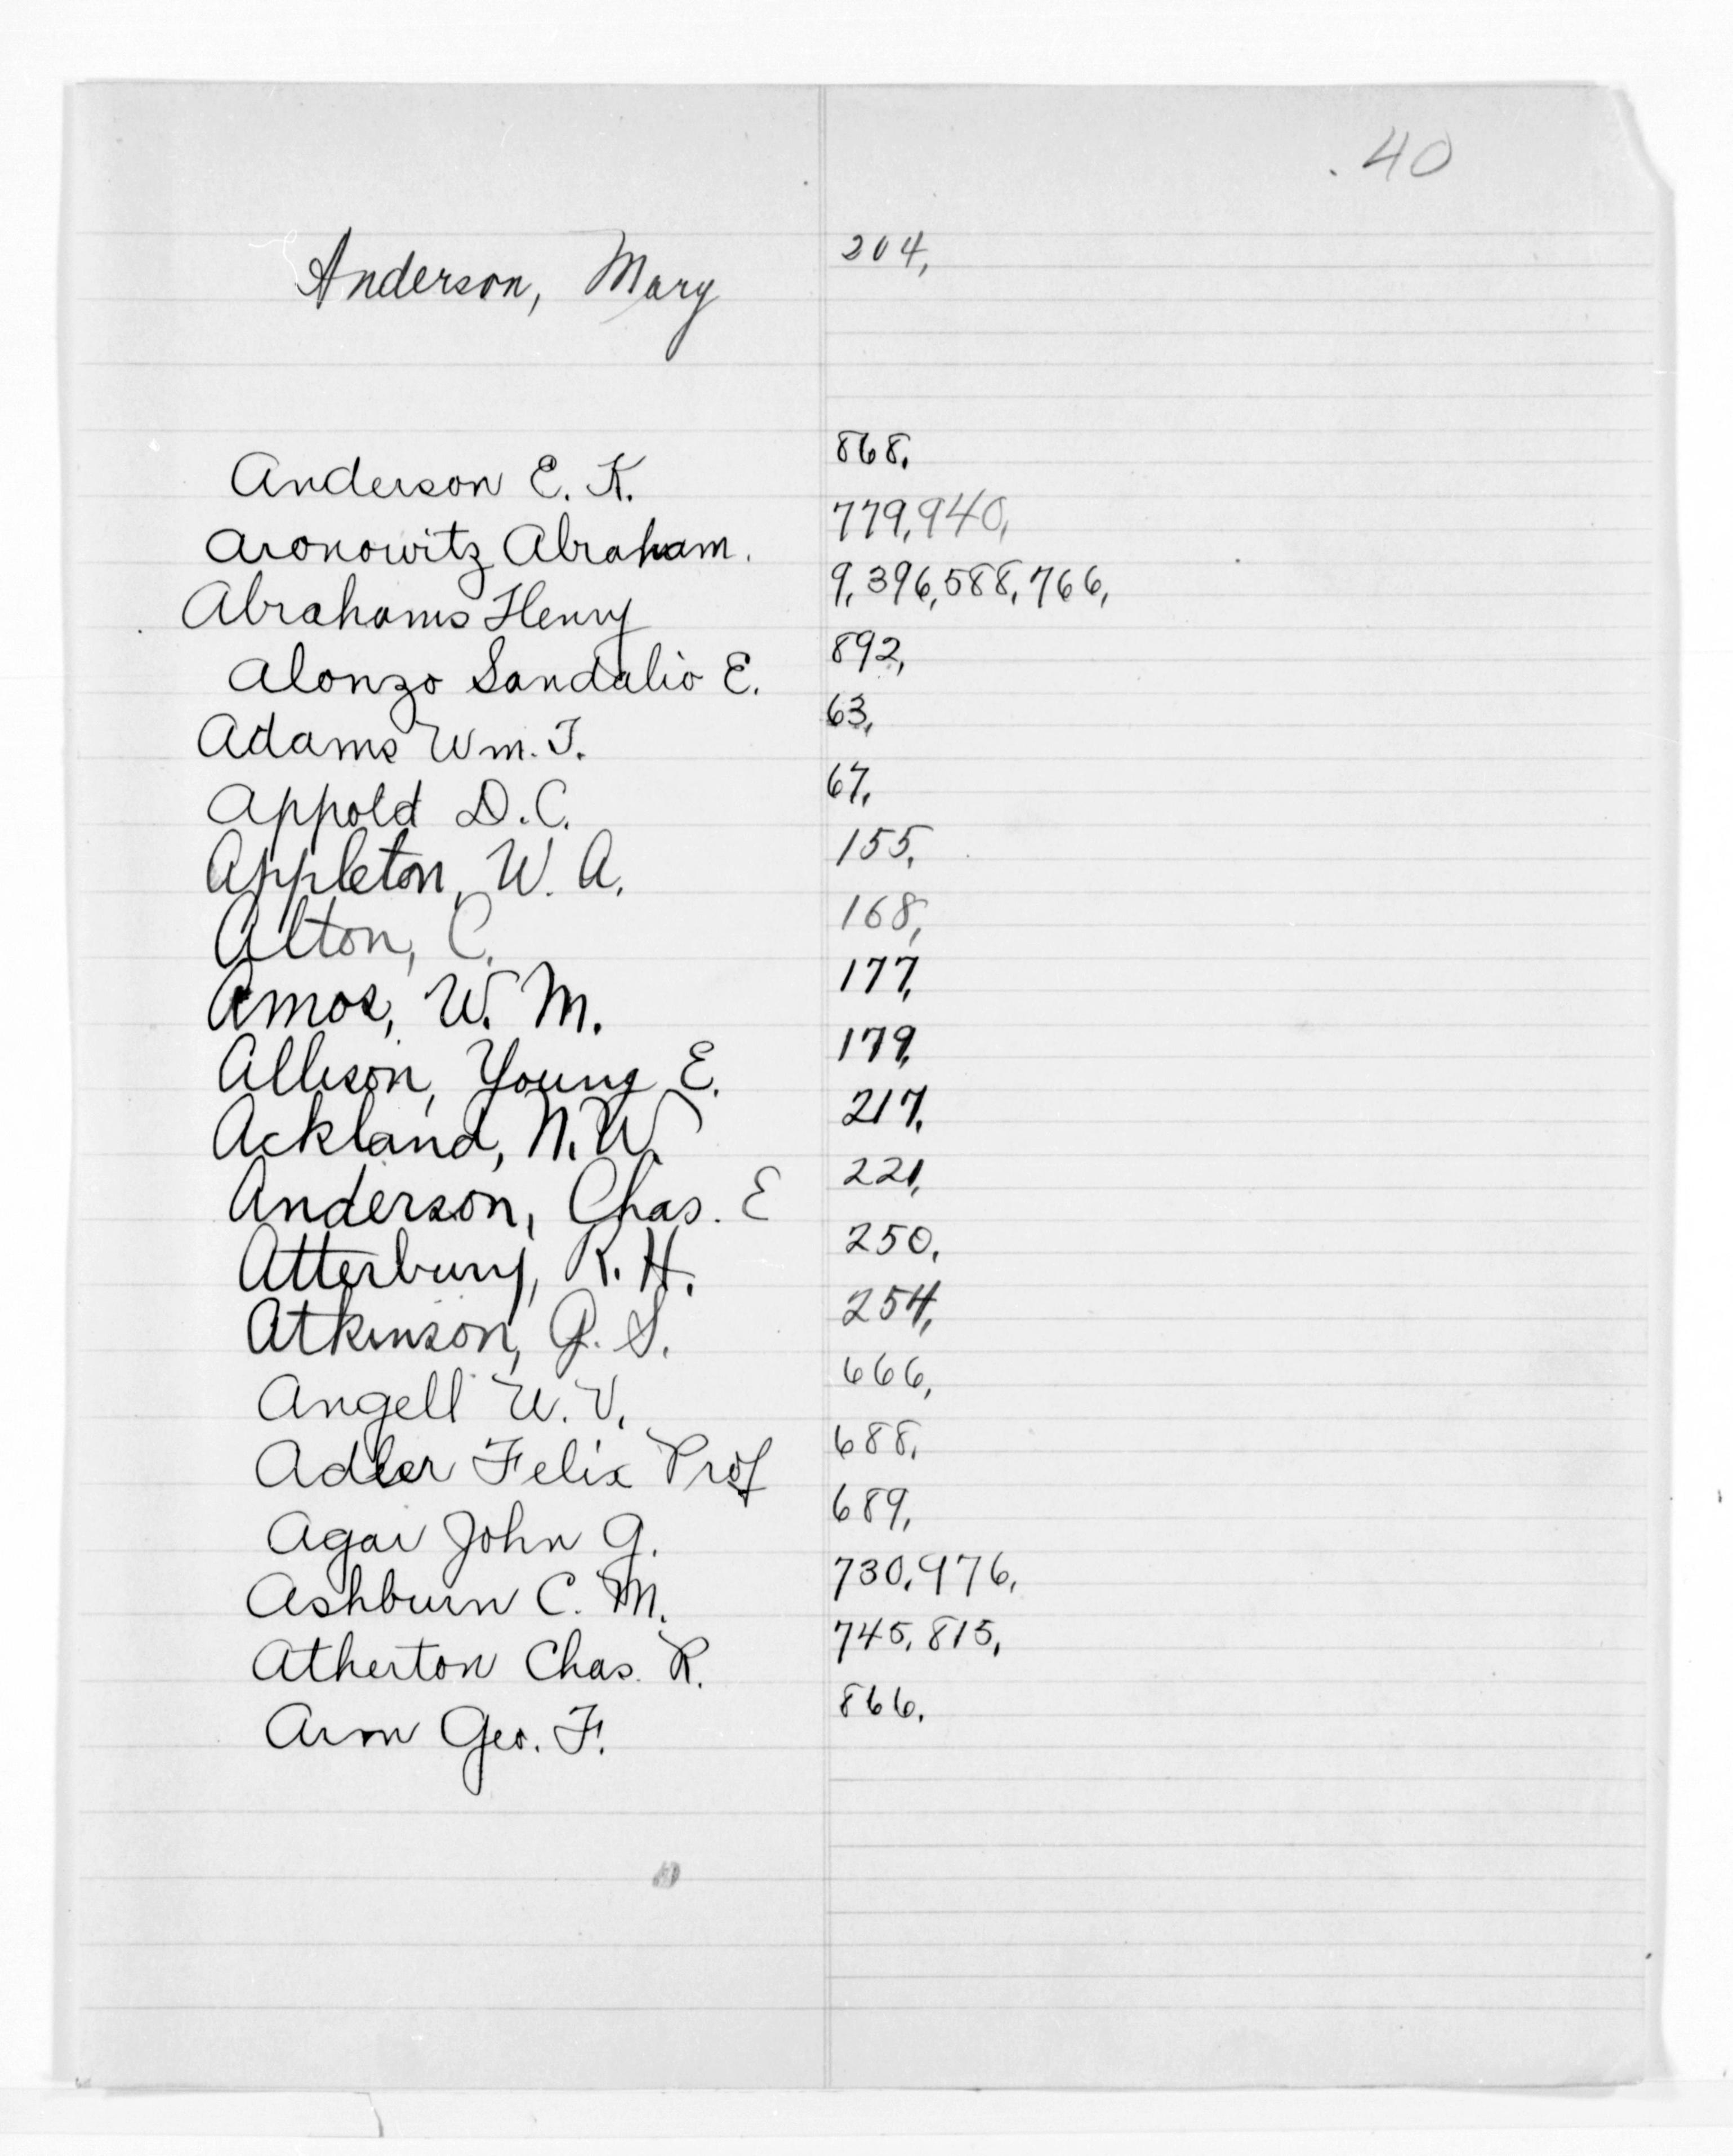 .40
Anderson, Mary 204,
Anderson E. K. 868,
Aronowitz Abraham. 779, 940,
Abrahams Henry 9, 396, 588, 766,
Alonzo Sandalio E. 892,
Adams Wm. T. 63,
Appold D. C. 67,
Appleton, W. A. 155,
Alton, C. 168,
Amos, W. M. 177,
Allison, Young E. 179,
Ackland, N. W. 217,
Anderson, Chas. E 221,
Atterbury, R. H. 250,
Atkinson, G. S. 254,
Angell W. V. 666,
Adler Felix Prof 688,
Agar John G. 689,
Ashburn C. M. 730, 976,
Atherton Chas. R. 745, 815,
Arm Geo. F. 866,